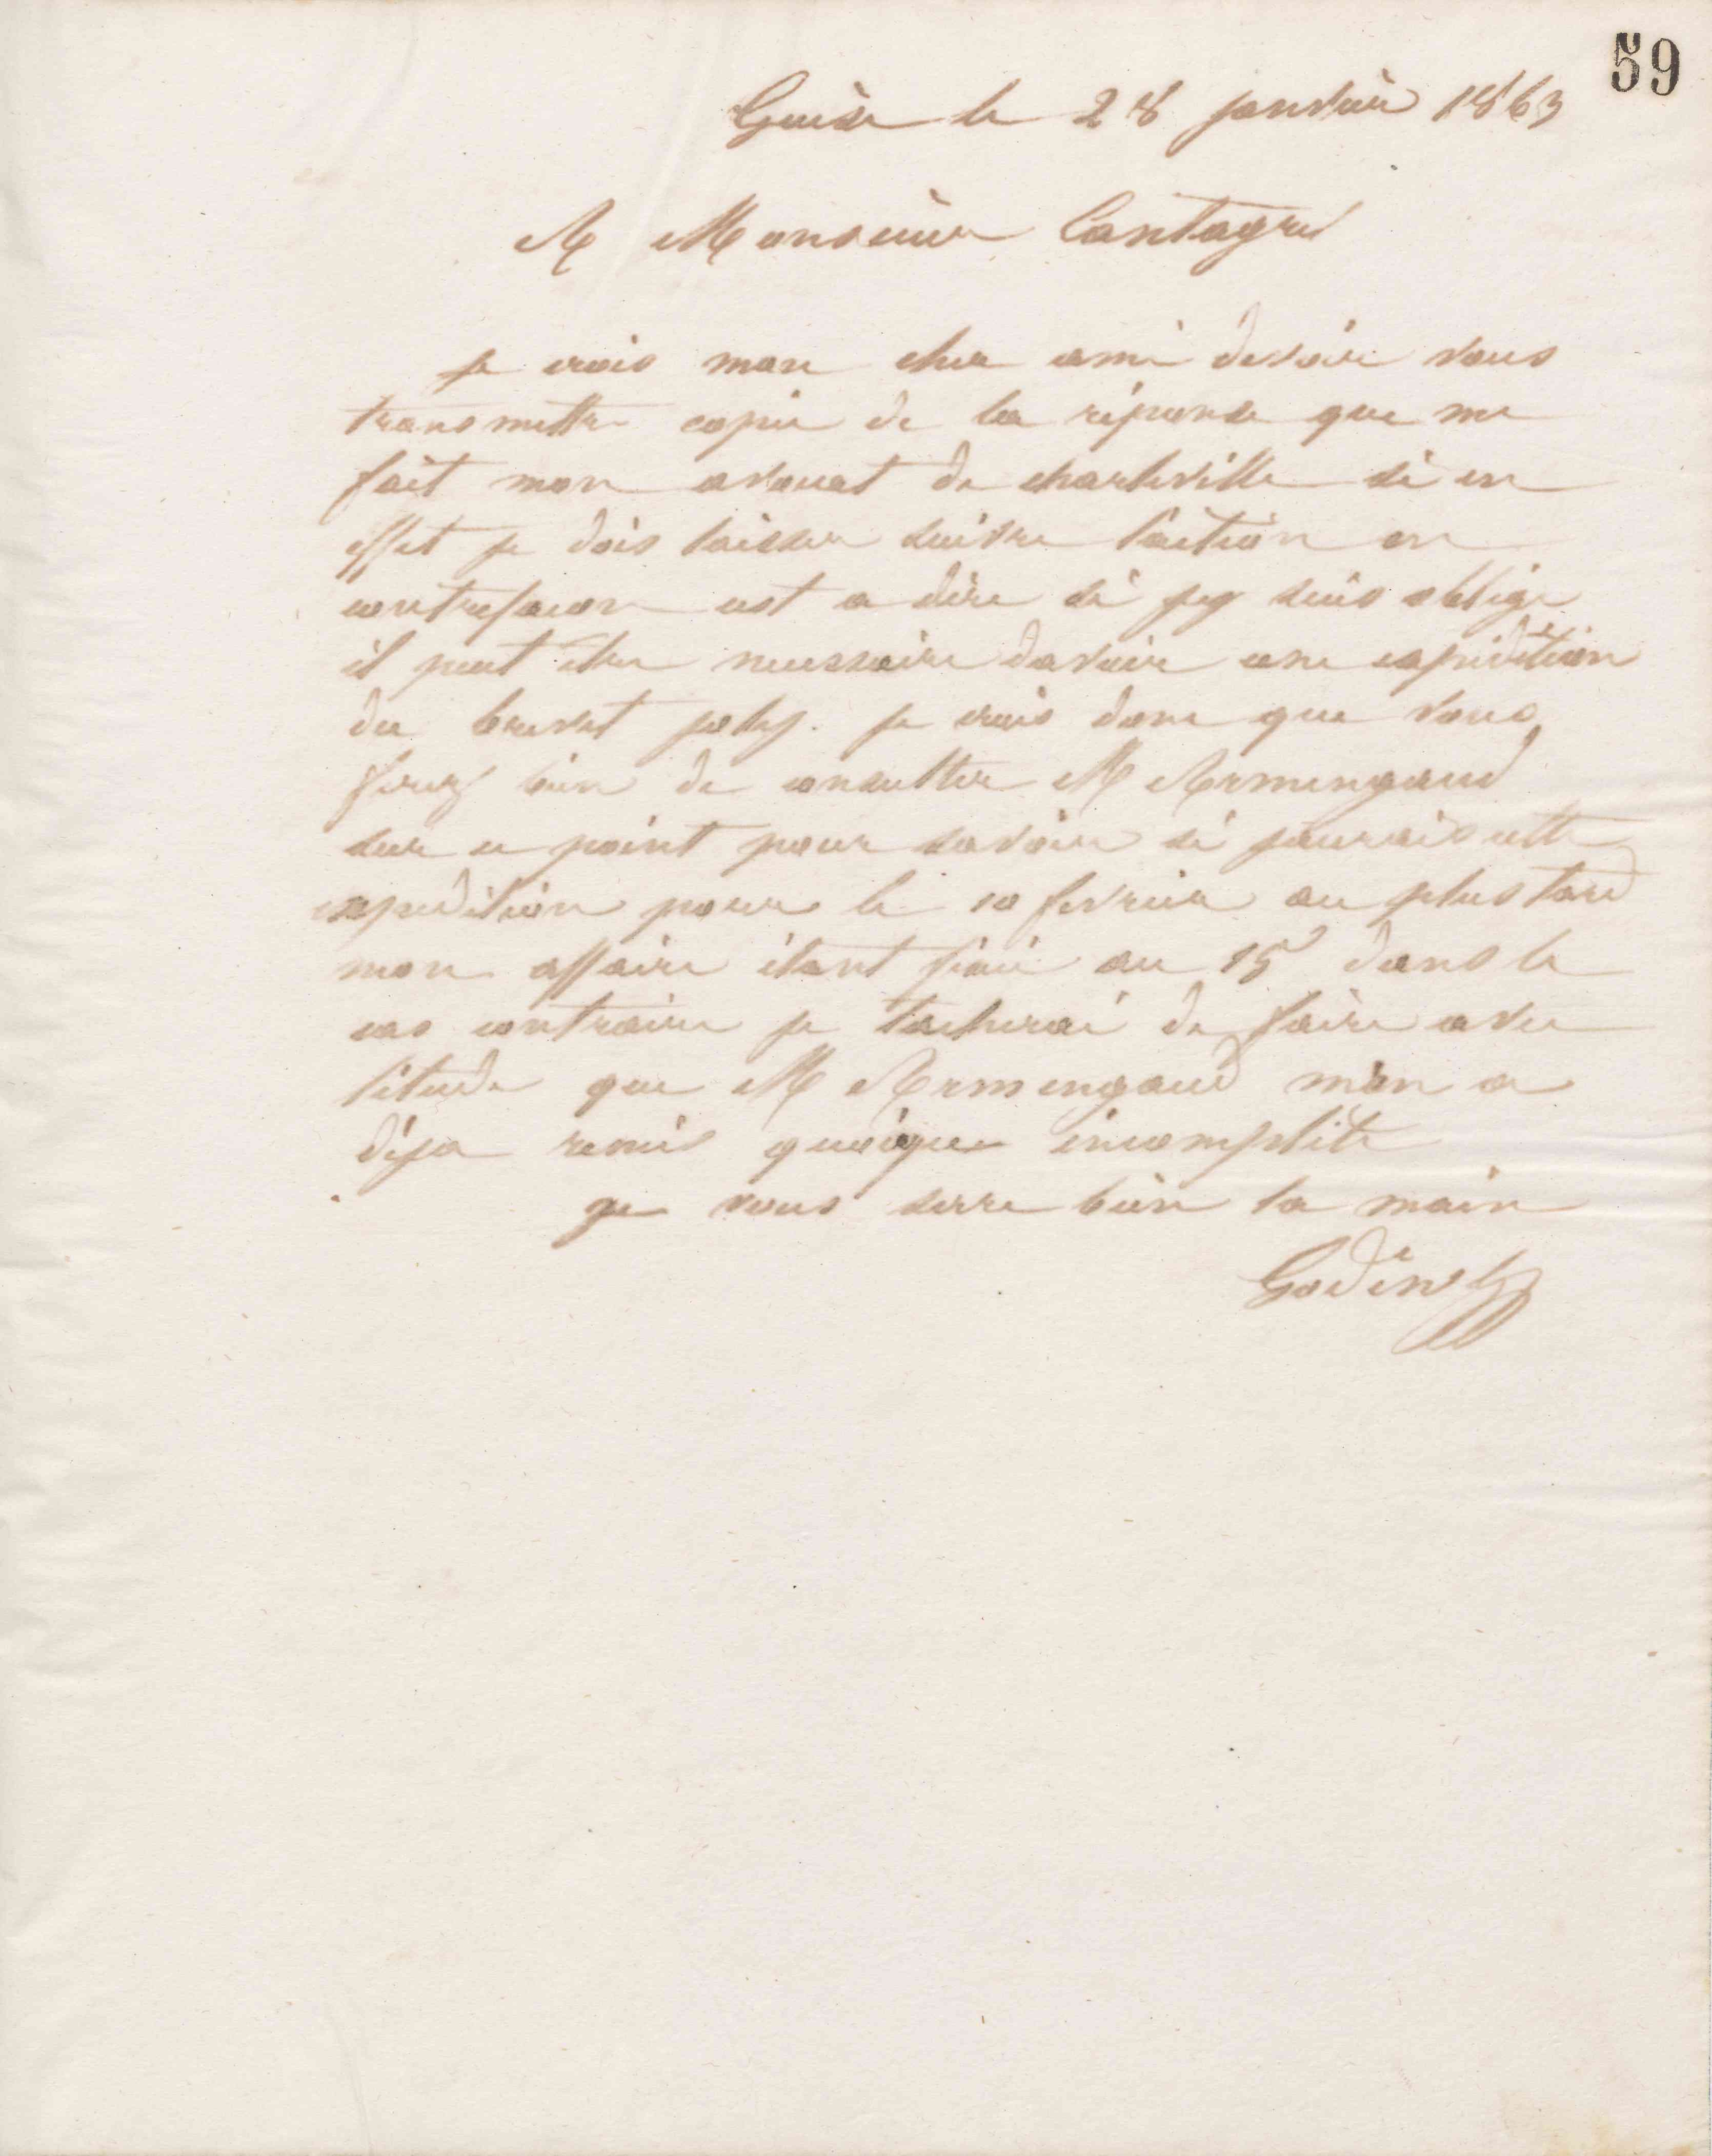 59
Guise le 28 janvier 1863
A Monsieur Cantagrel
je crois mon cher ami devoir vous
transmettre copie de la réponse que me
fait mon avocat de charleville si en
effet je dois laisser suivre l'action en
contrefacon cest a dire si jy suis obligé
il peut être necessaire davoir une expédition
du brevet joly. je crois donc que vous
ferez bien de consulter M Armengaud
sur ce point pour savoir si jaurais cette
expedition pour le 10 fevrier au plus tard
mon affaire étant fixée au 15 dans le
cas contraire je tacherai de faire avec
l'étude que M Armengaud m'en a
déja remis quoique incomplète
je vous serre bien la main
Godin